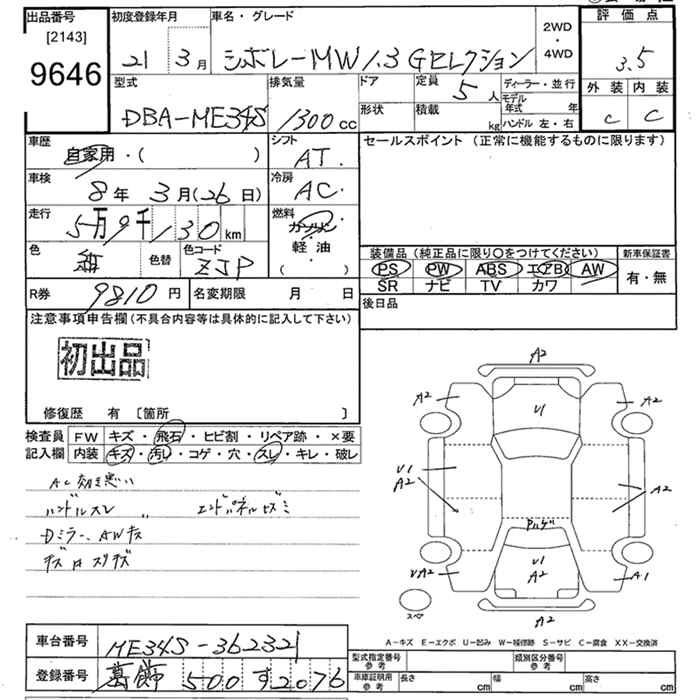 出品番号
[2143]
9646
初度登録年月
21 3月
車名・グレード
シボレーMW 1.3 Gセレクション
2WD
・
4WD
評価点
3.5
外装 内装
C C
型式
DBA-ME34S
排気量
1300cc
ドア
定員
5人
ディーラー・並行
形状
積載
kg
モデル年式 年
ハンドル 左・右
車歴
自家用・( )
シフト
AT.
車検
8年 3月(26日)
冷房
AC.
走行
5万9千130km
燃料
ガソリン
軽油
( )
色
紺
色替
色コード
ZJP
R券
9810円
名変期限 月 日
セールスポイント (正常に機能するものに限ります)
装備品 (純正品に限り○をつけてください)
新車保証書
PS PW ABS エアB AW
SR ナビ TV カワ
有・無
後日品
注意事項申告欄(不具合内容等は具体的に記入して下さい)
初出品
修復歴 有 [箇所 ]
検査員
記入欄
FW キズ・飛石・ヒビ割・リペア跡・×要
内装 キズ・汚レ・コゲ・穴・スレ・キレ・破レ
AC効き悪い
ハンドルスレ 〃
Dミラー、AWキズ
A2
A2 U1 A2
U1
A2
A2
U1
A2
UA2 A1
スペア
A-キズ E-エクボ U-凹み W-補修跡 S-サビ C-腐食 XX-交換済
車台番号
ME34S-362321
登録番号
葛飾 500 す2076
型式指定番号
参考
類別区分番号
参考
車庫証明用
参考
長さ cm 幅 cm 高さ cm